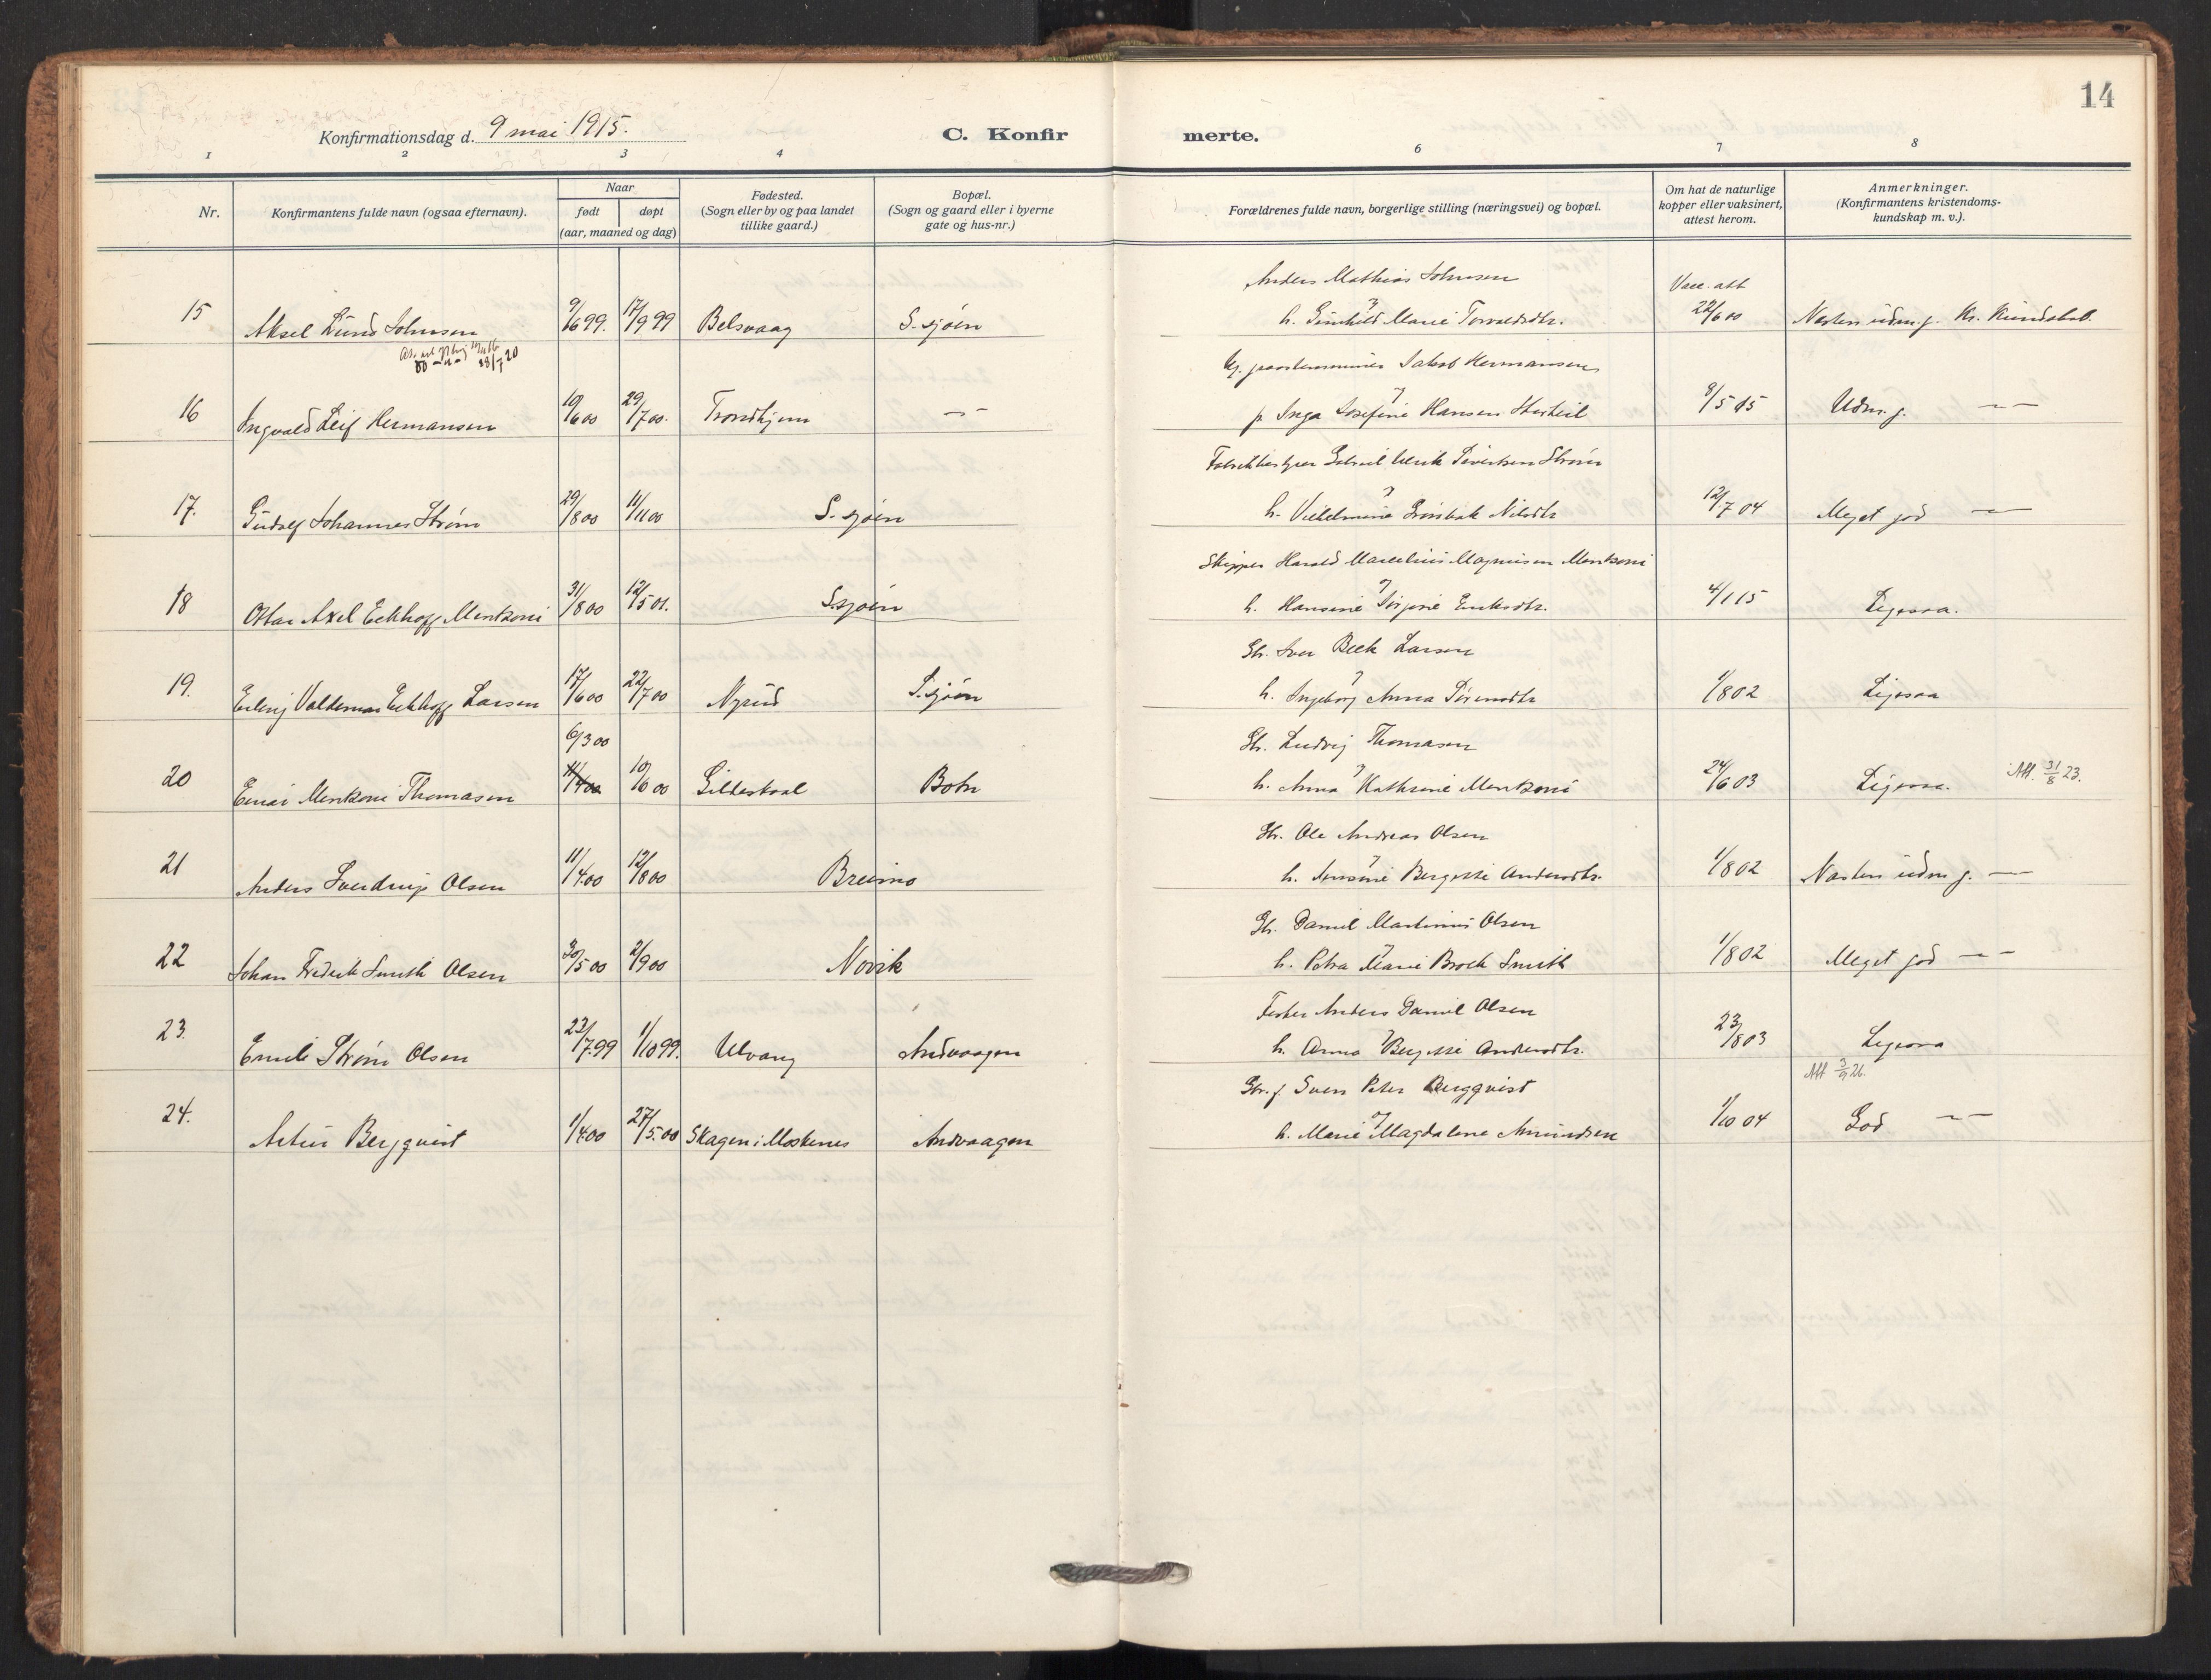 14
Konfirmationsdag d. 9 mai 1915.
C. Konfir merte.
1 2 3 4 6 7 8
Nr.
Konfirmantens fulde navn (ogsaa efternavn).
Naar
født døpt
(aar, maaned og dag)
Fødested.
(Sogn eller by og paa landet
tillike gaard.)
Bopæl.
(Sogn og gaard eller i byerne
gate og hus-nr.)
Forældrenes fulde navn, borgerlige stilling (næringsvei) og bopæl.
Om hat de naturlige
kopper eller vaksinert,
attest herom.
Anmerkninger.
(Konfirmantens kristendoms-
kundskap m. v.).
Anders Mathias Johnsen Vacc. att
15 Aksel Lund Johnsen 9/6 99. 17/9 99 Belsvaag S.sjøen h. Gunhild Marie Torvaldsdtr. 22/6 00 Næsten udm.g. Kr. Kundskab.
28/7 20
Jakob Hermansen
16 Ingvald Leif Hermansen 10/6 00 29/7 00. Trondhjem — " — p Inga Josefine Hansen 8/5 15 Udm.g. — " —
Gabriel Ulrik Sivertsen Strøm
17. Gudolf Johannes Strøm 29/8 00 11/11 00 S.sjøen h. Vilhelmine Grønbek Nilsdtr 12/7 04 Meget god — " —
Skipper Harald Marelius Magnusen Menkoni
18 Ottar Axel Eckhoff Menkoni 31/8 00 12/5 01. S.sjøen h. Hansine Jørgine Eriksdtr. 4/1 15 Ligesaa.
Gbr. Iver Beck Larsen
19. Erling Valdemar Eckhoff Larsen 17/6 00 22/7 00 Nyrud S.sjøen h. Ingeborg Anna Sørensdtr 1/8 02 Ligesaa
6/3 00 Gbr. Ludvig Thomasen
20 Einar Menkoni Thomasen 11/4 00 10/6 00 Gildeskaal Botn h. Anna Kathrine Menkoni 24/6 03 Ligesaa. Att. 31/8 23.
Gbr. Ole Andreas Olsen
21 Anders Sverdrup Olsen 11/4 00 12/8 00 Breimo h. Bergitte Andersdtr. 1/8 02 Næsten udm g. — " —
Gbr. Daniel Martinus Olsen
22 Johan Fredrik Smith Olsen 30/5 00 2/9 00 Novik h. Petra Marie Brock Smith 1/8 02 Meget god — " —
Fisker Anders Daniel Olsen
23. Emil Strøm Olsen 23/7 99 1/10 99. Ulvang Andvaagen h. Anna Bergitte Andersdtr. 23/8 03 Ligesaa
Gbr.f. Sven Peter Bergqvist Att 3/9 26.
24. Artur Bergqvist 1/4 00 27/5 00 Skagen i Moskenes Andvaagen h. Marie Magdalene Amundsen 1/10 04 God — " —